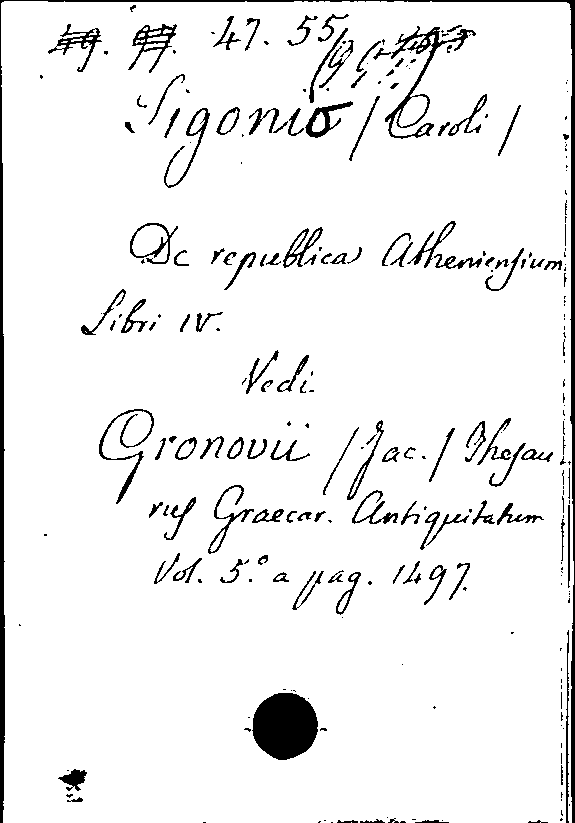 47. 55
Sigonio / Caroli /
De republica Atheniensium
Libri IV.
Vedi
Gronovii / Jac. / Thesau
rus Graecar. Antiquitatum
Vol. 5.° a pag. 1497.